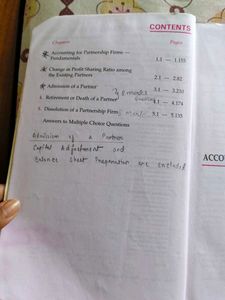 CONTENTS
Chapters Pages
Accounting for Partnership Firms —
Fundamentals 1.1 — 1.155
Change in Profit Sharing Ratio among
the Existing Partners 2.1 — 2.82
Admission of a Partner 3.1 — 3.230
4. Retirement or Death of a Partner 4.1 — 4.174
5. Dissolution of a Partnership Firm 5.1 — 5.135
Answers to Multiple Choice Questions
Admission of a Partner
Capital Adjustment and
Balance Sheet Preparation are excluded
ACCO